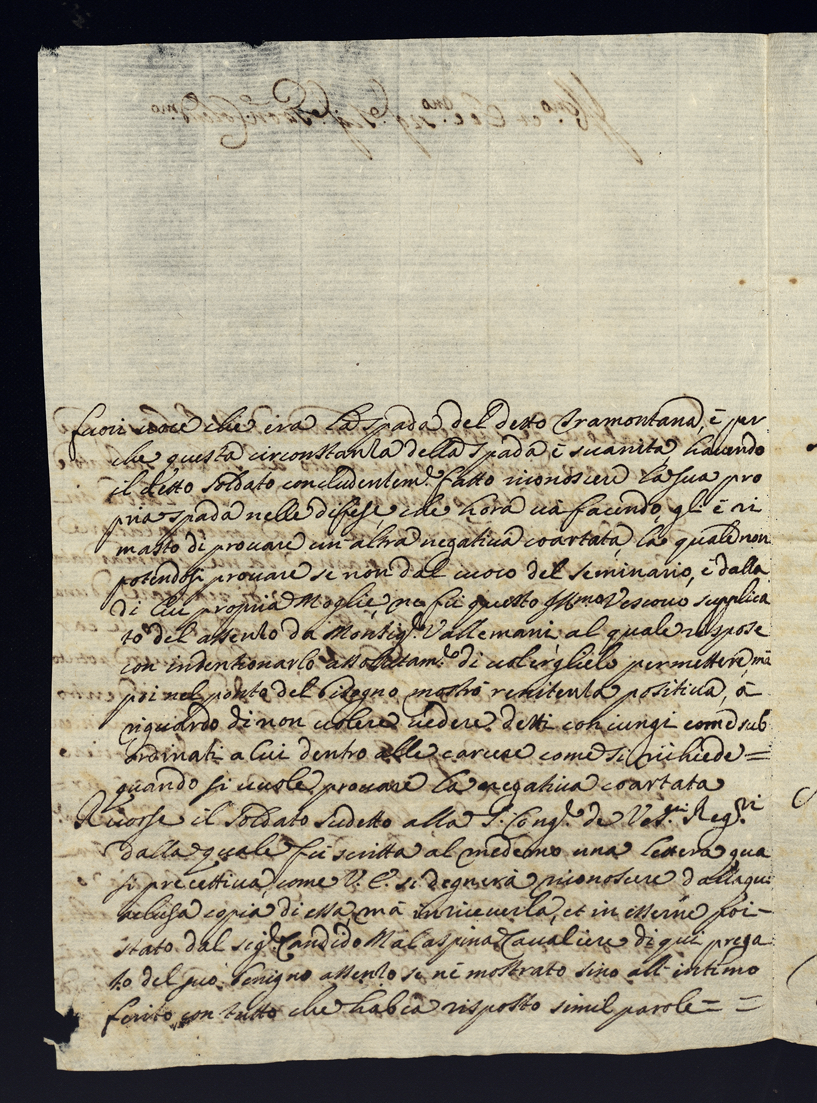 fuori uoce che era la spada del detto Tramontana, è per
che questa circonstanza della spada è suanita, hauendo
il detto soldato concludentem.e fatto riconoscere la sua pro
pria spada nelle difese che hora uà facendo, gli è ri
masto di prouare un'altra negatiua coartata, la quale non
potendosi prouare se non dal cuoco del seminario, è dalla
di lui propria Moglie, ne fù questo Ill.mo Vescouo supplica
to del assenso da Monsig.r Vallemani, al quale rispose
con intentionarlo assolutam.e di uolerglielo permettere, mà
poi nel ponto del bisogno mostrò renitenza positiua, à
riguardo di non uolere uedere detti coniungi come sub
ordinati a lui dentro alle carcere come si richiede =
quando si uuole prouare la negatiua coartata
Ricorse il soldato sudetto alla S. Cong.e de Ves.ui Reg.ri
dalla quale fù scritta al medemo una lettera qua
si precettiua, come V. E. si degnerà riconoscere dall'aqui
aclusa copia di essa, mà in riceuerla, et in esserne poi =
stato dal sig.r Candido Malaspina Caualiere di qui prega
to del più benigno assenso se n'è mostrato sino all'intimo
ferito con tutto che habbia risposto simil parole = =